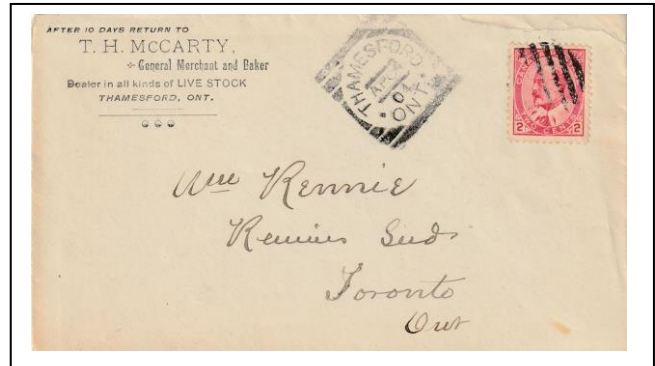 AFTER 10 DAYS RETURN TO
T. H. MCCARTY,
General Merchant and Baker
Dealer in all kinds of LIVE STOCK
THAMESFORD, ONT.
THAMESFORD
04
ONT.
2 CENTS 2
Wm Rennie
Rennies Seeds
Toronto
Ont